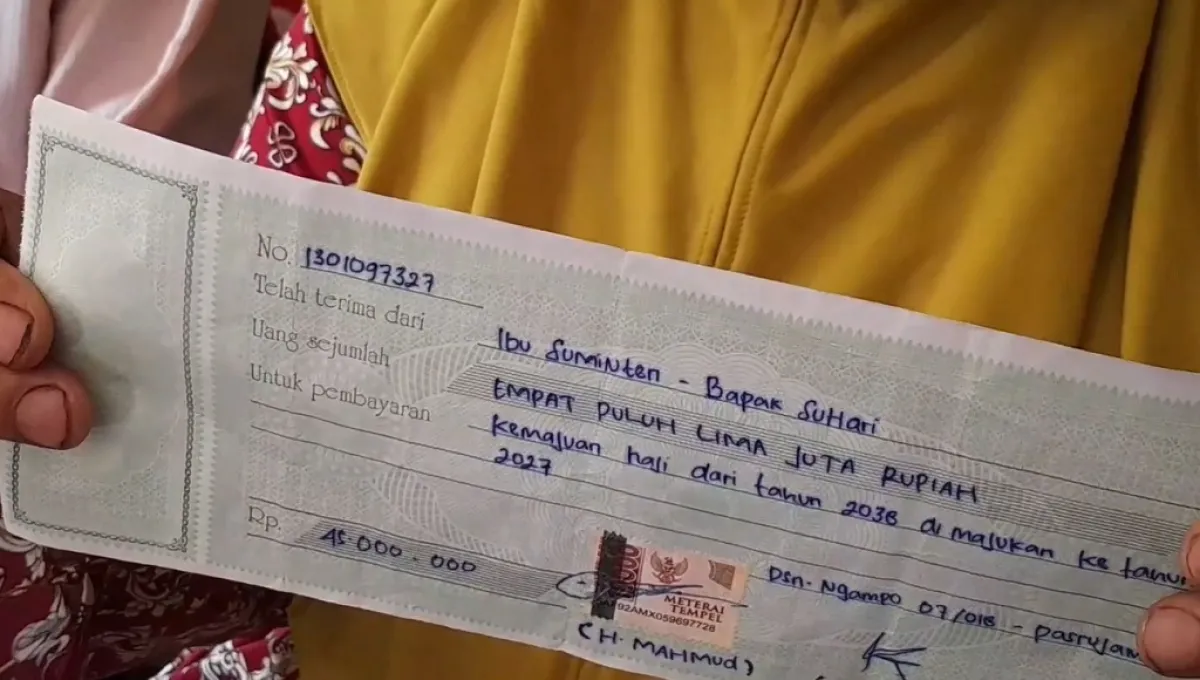 No. 1301097327
Telah terima dari Ibu Suminten - Bapak SuHari
Uang sejumlah EMPAT PULUH LIMA JUTA RUPIAH
Untuk pembayaran Kemajuan haji dari tahun 2038 di majukan ke tahun
2027
Rp. 45.000.000
Dsn. Ngampo 07/018 - pasrujam
METERAI
TEMPEL
92AMX059697728
(H. MAHMUD)